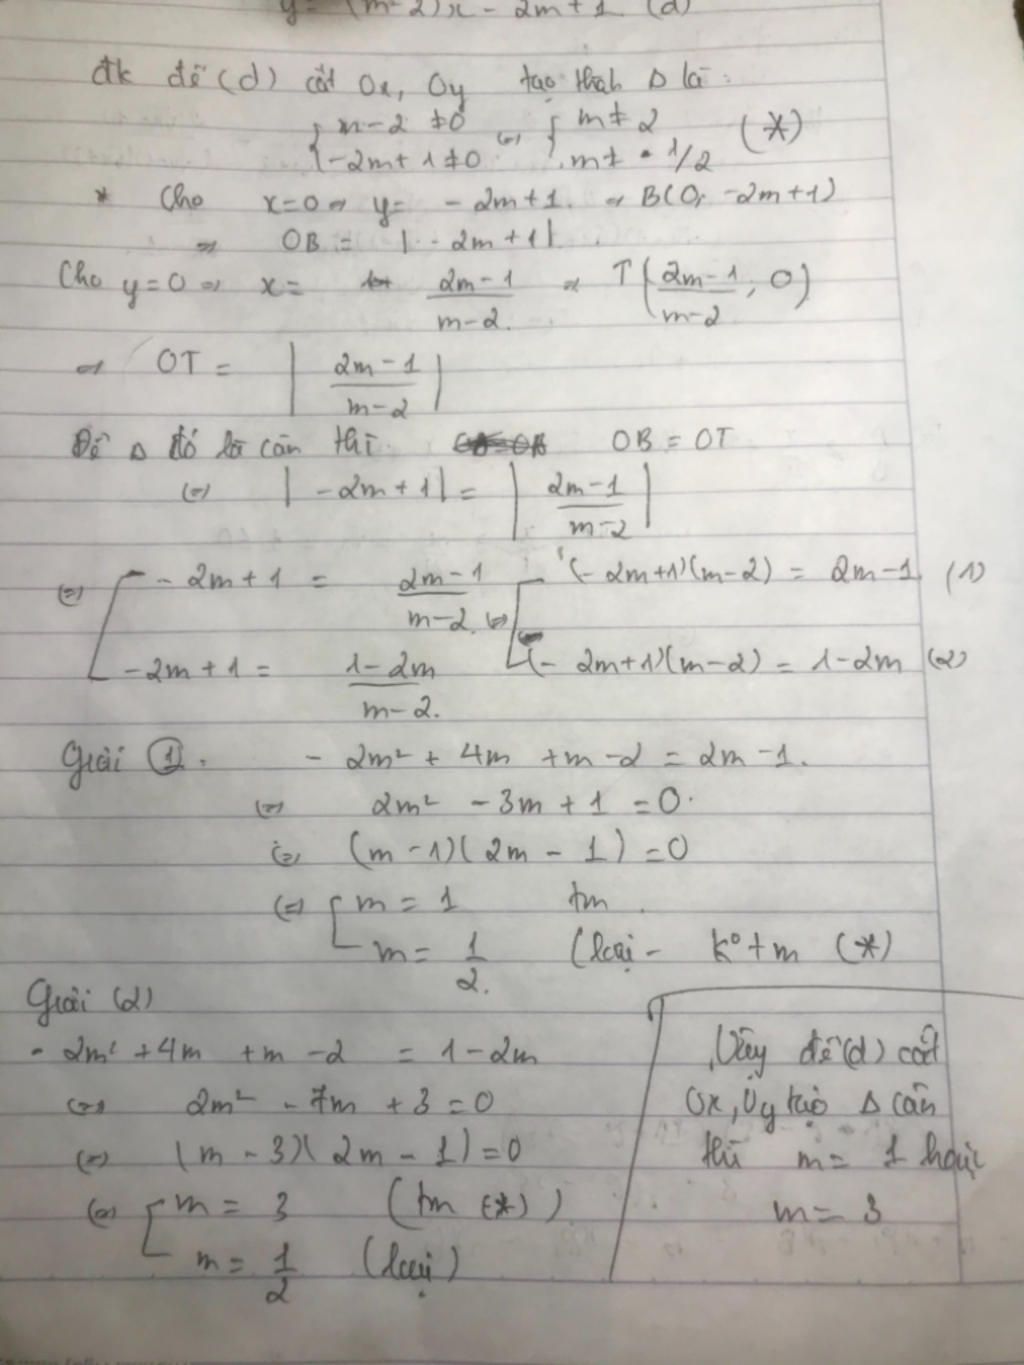 y = (m-2)x - 2m+1 (d)
đk để (d) cắt Ox, Oy tạo thành Δ là:
{ m-2 ≠0 (=) { m≠ 2 (*)
{ -2m+1≠0 { m≠ 1/2
* Cho x=0 => y= -2m+1. => B(0; -2m+1)
=> OB = |-2m+1|.
Cho y=0 => x= 2m-1/m-2. => T(2m-1/m-2; 0)
=> OT = | 2m-1/m-2 |
Để Δ đó là cân thì OB = OT
(=) | -2m+1| = | 2m-1/m-2 |
(=) [ -2m+1 = 2m-1/m-2. (=) [ (-2m+1)(m-2) = 2m-1 (1)
[ -2m+1 = 1-2m/m-2. [ (-2m+1)(m-2) = 1-2m (2)
Giải ①. -2m² + 4m +m -2 = 2m -1.
(=) 2m² -3m + 1 =0.
(=) (m -1)(2m - 1) =0
(=) [ m = 1 tm.
[ m= 1/2. (loại - k° tm (*)
Giải (2)
-2m² +4m +m -2 = 1-2m
(=) 2m² -7m +3=0
(=) (m-3)(2m-1)=0
(=) [ m = 3 (tm (*))
[ m= 1/2 (loại)
Vậy để (d) cắt
Ox, Oy tạo Δ cân
thì m= 1 hoặc
m= 3